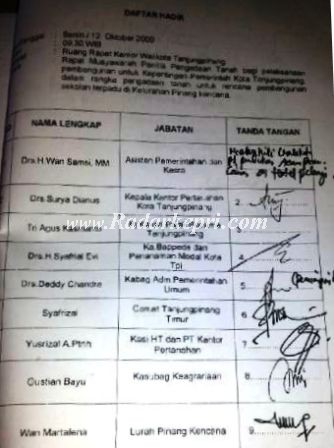 DAFTAR HADIR
Senin / 12 Oktober 2009
09.30 WIB
Ruang Rapat Kantor Walikota Tanjungpinang
Rapat Musyawarah Panitia Pengadaan Tanah bagi pelaksanaan
pembangunan untuk Kepentingan Pemerintah Kota Tanjungpinang
dalam rangka pengadaan tanah untuk rencana pembangunan
sekolah terpadu di Kelurahan Pinang kencana.
NAMA LENGKAP JABATAN TANDA TANGAN
Drs.H.Wan Samsi, MM Asisten Pemerintahan dan
Kesra
Drs.Surya Dianus Kepala Kantor Pertanahan
Kota Tanjungpinang 2
www.Radarkepri.com
Tri Agus
Tanjungpinang
Drs.H.Syafrial Evi Ka.Bappeda dan
Penanaman Modal Kota
Tpi 4
Drs.Deddy Chandra Kabag Adm.Pemerintahan
Umum 5
Syafrizal Camat Tanjungpinang
Timur 6
Yusrizal A.Ptnh Kasi HT dan PT Kantor
Pertanahan 7
Gustian Bayu Kasubag Keagrariaan 8
Wan Martalena Lurah Pinang Kencana 9